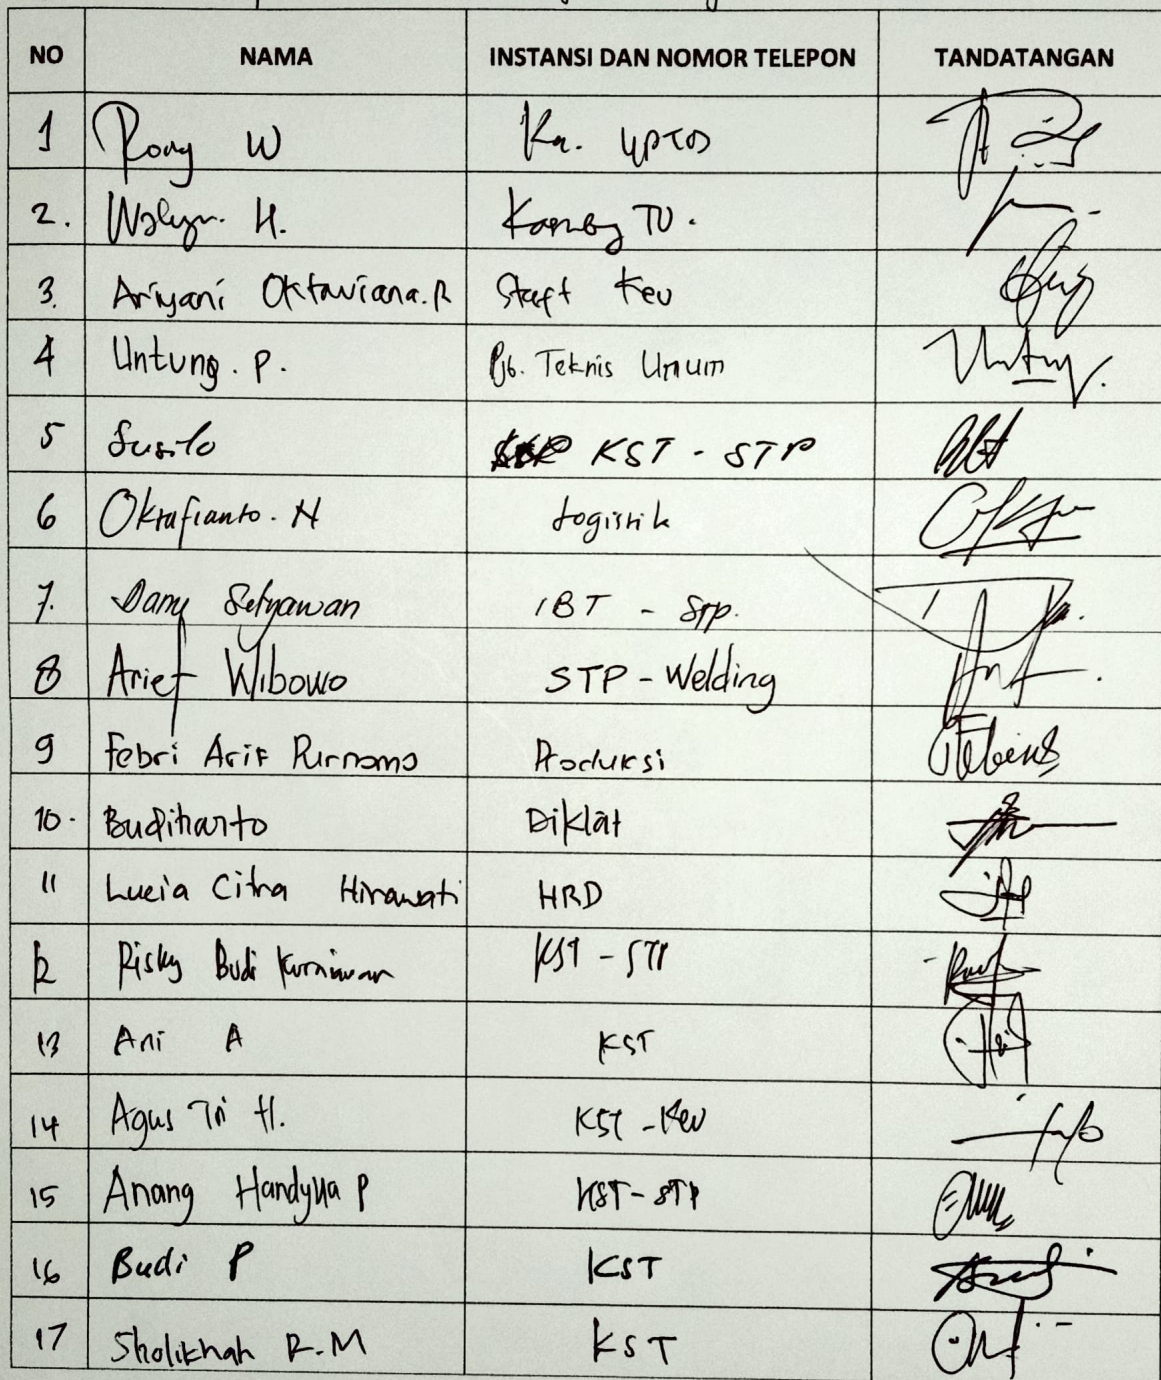 NO NAMA INSTANSI DAN NOMOR TELEPON TANDATANGAN
1 Rony W Ka. UPTD
2. H. TU.
3. Ariyani Oktaviana.R Staff Keu
4 Untung. P. Pjb. Teknis Umum Untung.
5 Susilo KST - STP
6 Oktafianto. H Logistik
7. Dany Setyawan IBT - STP.
8 Arief Wibowo STP - Welding
9 Febri Arif Purnomo Produksi
10. Budiharto Diklat
11 Lucia Citra Hirawati HRD
12 Risky Budi Kurniawan KST - STP
13 Ani A KST
14 Agus Tri H. KST - Keu
15 Anang Handyka P KST - STP
16 Budi P KST
17 Sholikhah R.M KST